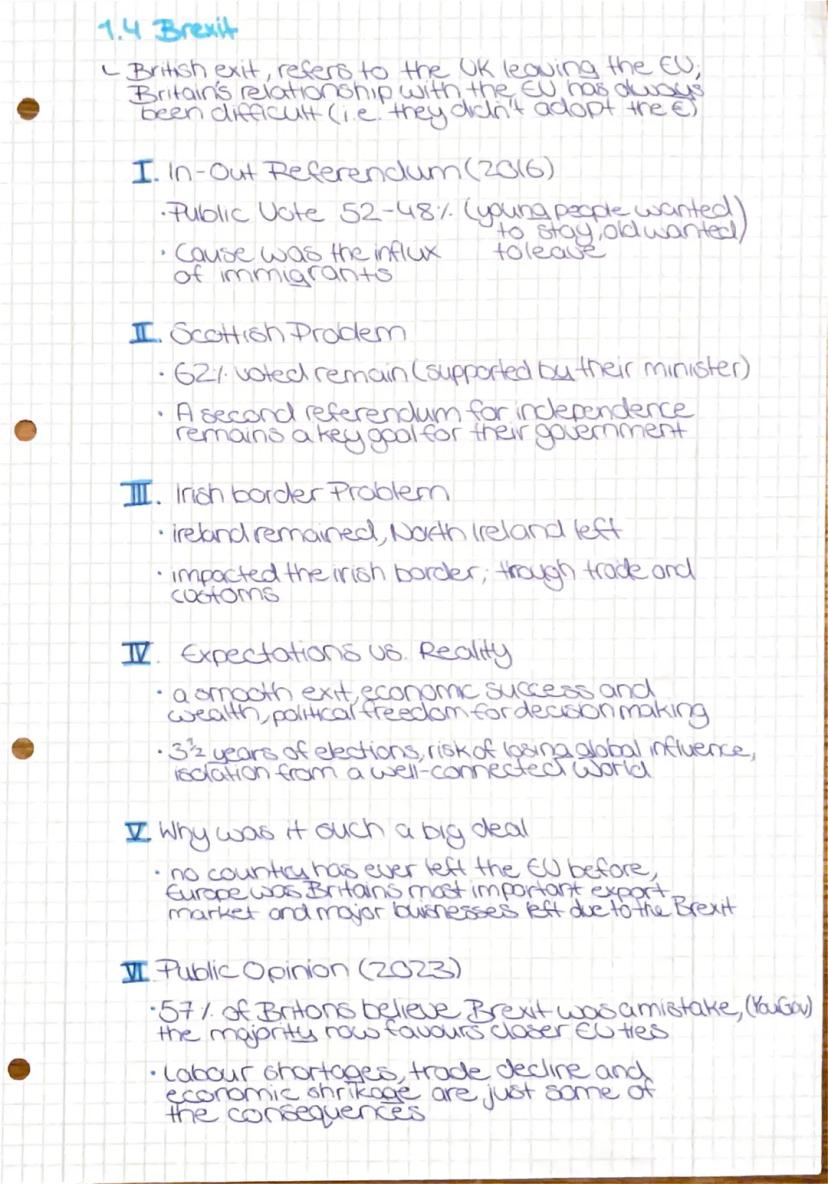 1.4 Brexit
British exit, refers to the UK leaving the EU;
Britain's relationship with the EU has always
been difficult (i.e. they didn't adopt the €)
I. In-Out Referendum (2016)
· Public Vote 52-48% (young people wanted
to stay, old wanted)
· Cause was the influx to leave
of immigrants
II. Scottish Problem
· 62% voted remain (supported by their minister)
· A second referendum for independence
remains a key goal for their government
III. Irish border Problem
· ireland remained, North Ireland left
· impacted the irish border; through trade and
customs
IV. Expectations vs. Reality
· a smooth exit, economic success and
wealth, political freedom for decision making
· 3½ years of elections, risk of losing global influence,
isolation from a well-connected world
V Why was it such a big deal
· no country has ever left the EU before,
Europe was Britains most important export
market and major buisnesses left due to the Brexit
VI Public Opinion (2023)
· 57% of Britons believe Brexit was a mistake, (YouGov)
the majority now favours closer EU ties
· Labour shortages, trade decline and
economic shrikage are just some of
the consequences